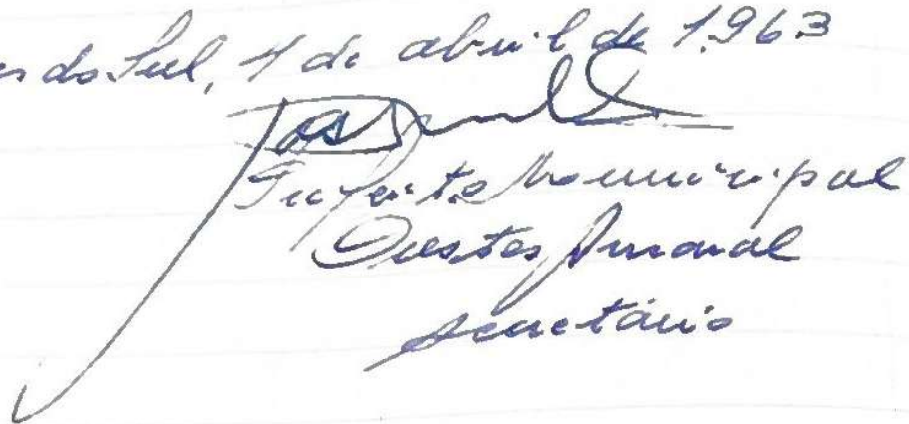 do Sul, 4 de abril de 1.963
Prefeito Municipal
Orestes Amaral
secretário